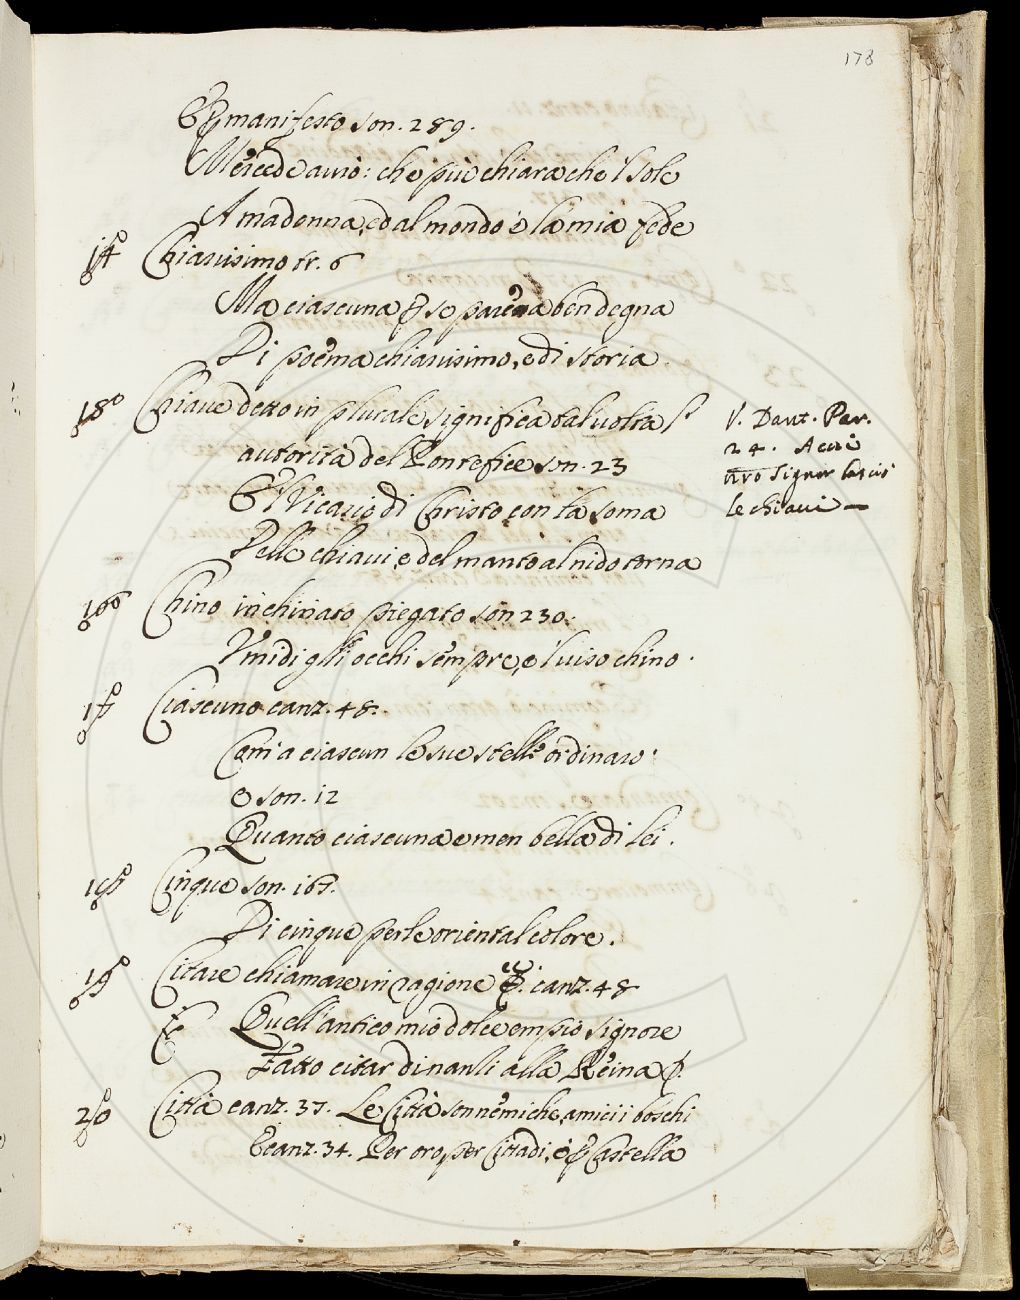 178
E p manifesto son. 289.
Mercede avrò: che più chiara che 'l sole
A madonna, ed al mondo è la mia fede
14º Chiarissimo tr. 6
Ma ciascuna p se pareva ben degna
Di poema chiarissimo, e di storia.
Chiaue detto in plurale significa tal uolta l'
autorità del Pontefice son. 23
E 'l Vicario di Christo con la soma
Delle chiaui, e del manto al nido torna
V. Dant. Par.
24. A cui
nro Signor lasciò
le chiaui —
16º Chino inchinato piegato son 230.
Vmidi gli occhi sempre, e 'l uiso chino.
17º Ciascuno canz. 48.
Ch'a ciascun le sue stelle ordinaro:
e son. 12
Quanto ciascuna e men bella di lei.
18º Cinque son. 167.
Di cinque perle oriental colore.
19º Citare chiamare in ragione canz. 48
Quell'antico mio dolce empio signore
Fatto citar dinanzi alla Reina
20 Città canz. 37. Le Città son nemiche, amici i boschi
E canz. 34. Per oro, o per Cittadi, ò p Castella